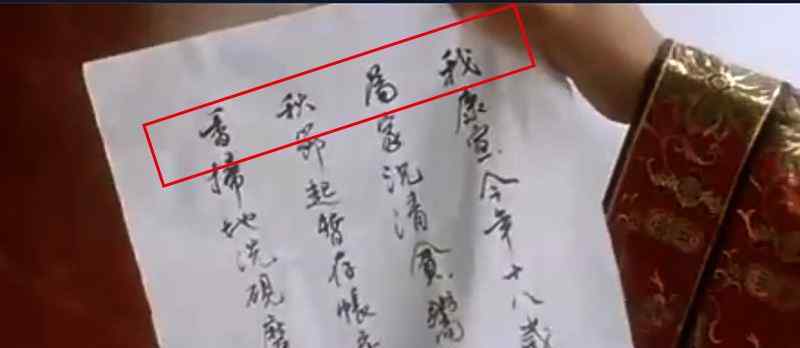 我康宣今年十八歲
為家況清貧鬻
秋節起暫存帳
香掃地洗硯磨